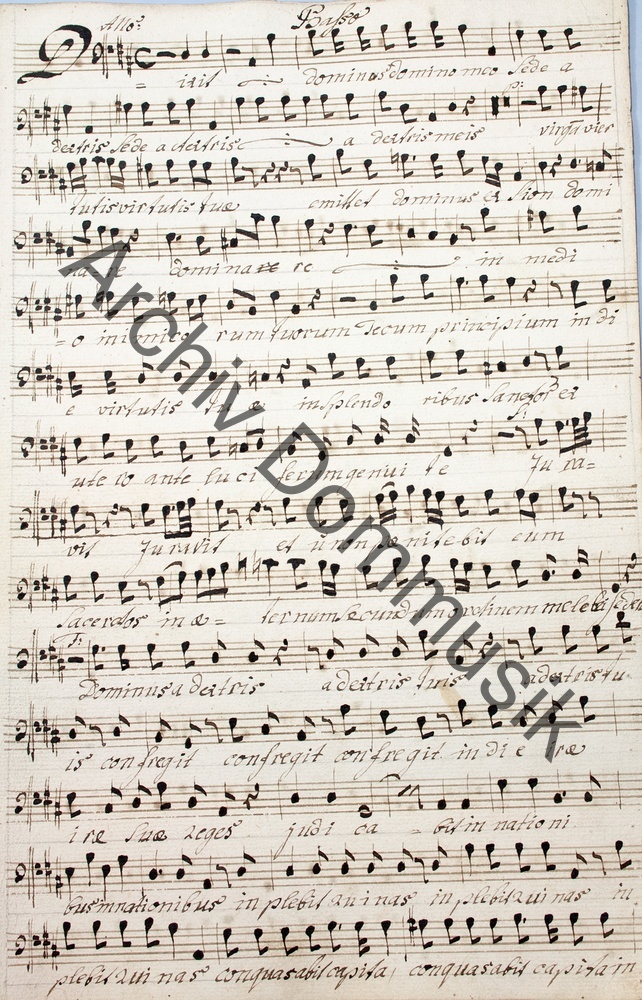 Allo: Basso
Dixit dominus domino meo sede a
dextris sede a dextris a dextris meis virga vir
tutis virtutis tuæ emittet dominus ex Sion domi
nare dominare re in medi
o inimico rum tuorum Tecum principium in di
e virtutis tu æ in splendo ribus Sanctor ex
utero ante luci ferum genui te Ju ra=
vit Juravit et non pænitebit eum
Sacerdos in æ= ternum secundum ordinem melch
Dominus a dextris a dextris tuis a dextris tu
is confregit confregit confregit in di e iræ
i ræ suæ reges judi ca = bit in nationi
bus in nationibus inplebit ruinas inplebit ruinas in
plebit rui nas conquasabit capita conquasabit capita in
Archiv Dommusik